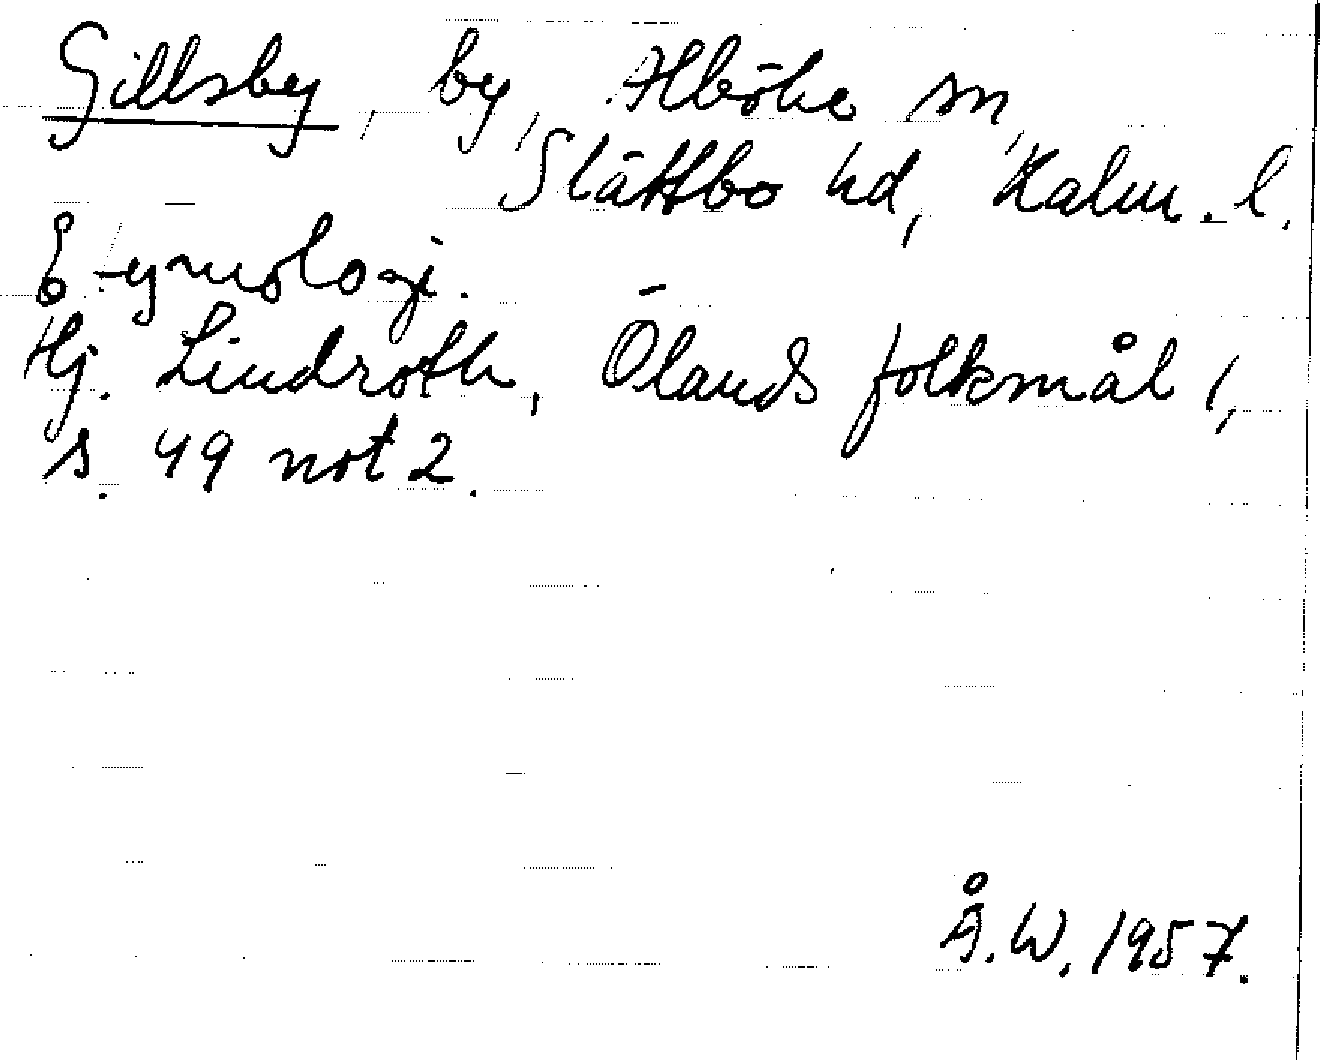 Gillsby, by, Alböke sn,
Slättbo hd, Kalm. l.
Etymologi.
Hj. Lindroth, Ölands folkmål 1,
s. 49 not 2.
Å. W. 1957.